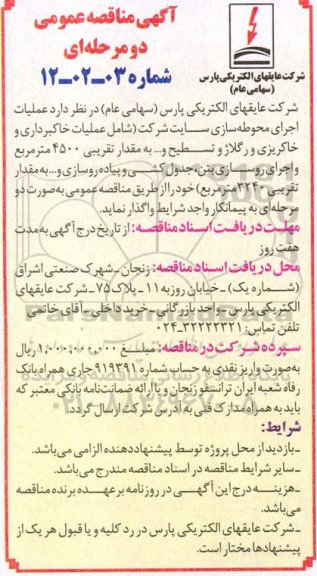 آگهی مناقصه عمومی
دو مرحله‌ای
شماره ۰۳-۰۲-۱۲
شرکت عایقهای الکتریکی پارس
(سهامی عام)
شرکت عایقهای الکتریکی پارس (سهامی عام) در نظر دارد عملیات
اجرای محوطه‌سازی سـایت شرکت (شامل عملیات خاکبرداری و
خاکریزی و رگلاژ و تسطیح و... به مقدار تقریبی ۴۵۰۰ مترمربع
و اجرای روسـازی بتن، جدول کشی و پیاده‌روسازی و... به‌مقدار
تقریبی ۳۲۴۰ مترمربع) خود را از طریق مناقصه عمومی به‌صورت دو
مرحله‌ای به پیمانکار واجد شرایط واگذار نماید.
مهلت دریافت اسناد مناقصه: از تاریخ درج آگهی به مدت
هفت روز
محل دریافت اسناد مناقصه: زنجان - شهرک صنعتی اشراق
(شـماره یک) - خیابان روزبه ۱۱ - پلاک ۷۵ - شرکت عایقهای
الکتریکی پارس - واحد بازرگانی - خرید داخلی - آقای خاتمی
تلفن تماس: ۳۲۲۲۲۳۲۱-۰۲۴
سـپرده شـرکت در مناقصه: مبلـغ ۱,۰۰۰,۰۰۰,۰۰۰ ریال
به‌صورت واریز نقدی به حساب شماره ۹۱۹۳۹۱ جاری همراه بانک
رفاه شعبه ایران ترانسفو زنجان و یا ارائه ضمانت‌نامه بانکی معتبر که
باید به همراه مدارک فنی به آدرس شرکت ارسال گردد.
شرایط:
- بازدید از محل پروژه توسط پیشنهاددهنده الزامی می‌باشد.
- سایر شرایط مناقصه در اسناد مناقصه مندرج می‌باشد.
- هزینـه درج این آگهـی در روزنامه بر عهـده برنده مناقصه
می‌باشد.
- شـرکت عایقهای الکتریکی پارس در رد کلیه و یا قبول هر یک از
پیشنهادها مختار است.